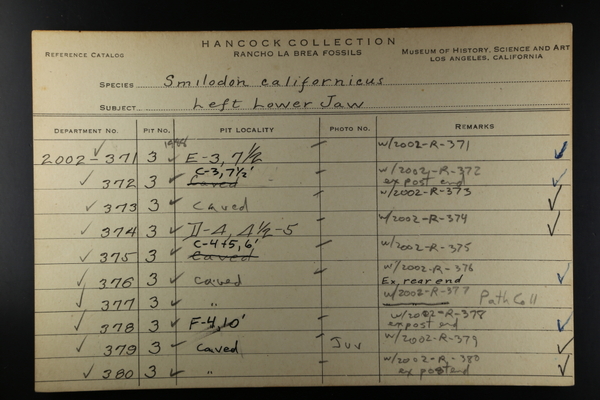 HANCOCK COLLECTION
REFERENCE CATALOG
RANCHO LA BREA FOSSILS
MUSEUM OF HISTORY, SCIENCE AND ART
LOS ANGELES, CALIFORNIA
SPECIES Smilodon californicus
SUBJECT Left Lower Jaw
DEPARTMENT NO. PIT NO. PIT LOCALITY PHOTO NO. REMARKS
2002-371 3 E-3, 7½ w/2002-R-371
372 3 C-3, 7½' Caved w/2002-R-372
ex post end
373 3 Caved w/2002-R-373
374 3 II-4, 4½-5 w/2002-R-374
375 3 C-4+5, 6' Caved w/2002-R-375
376 3 Caved w/2002-R-376
Ex, rear end
377 3 " w/2002-R-377 Path Coll
378 3 F-4, 10' w/2002-R-378
ex post end
379 3 Caved Juv w/2002-R-379
380 3 " w/2002-R-380
ex post end